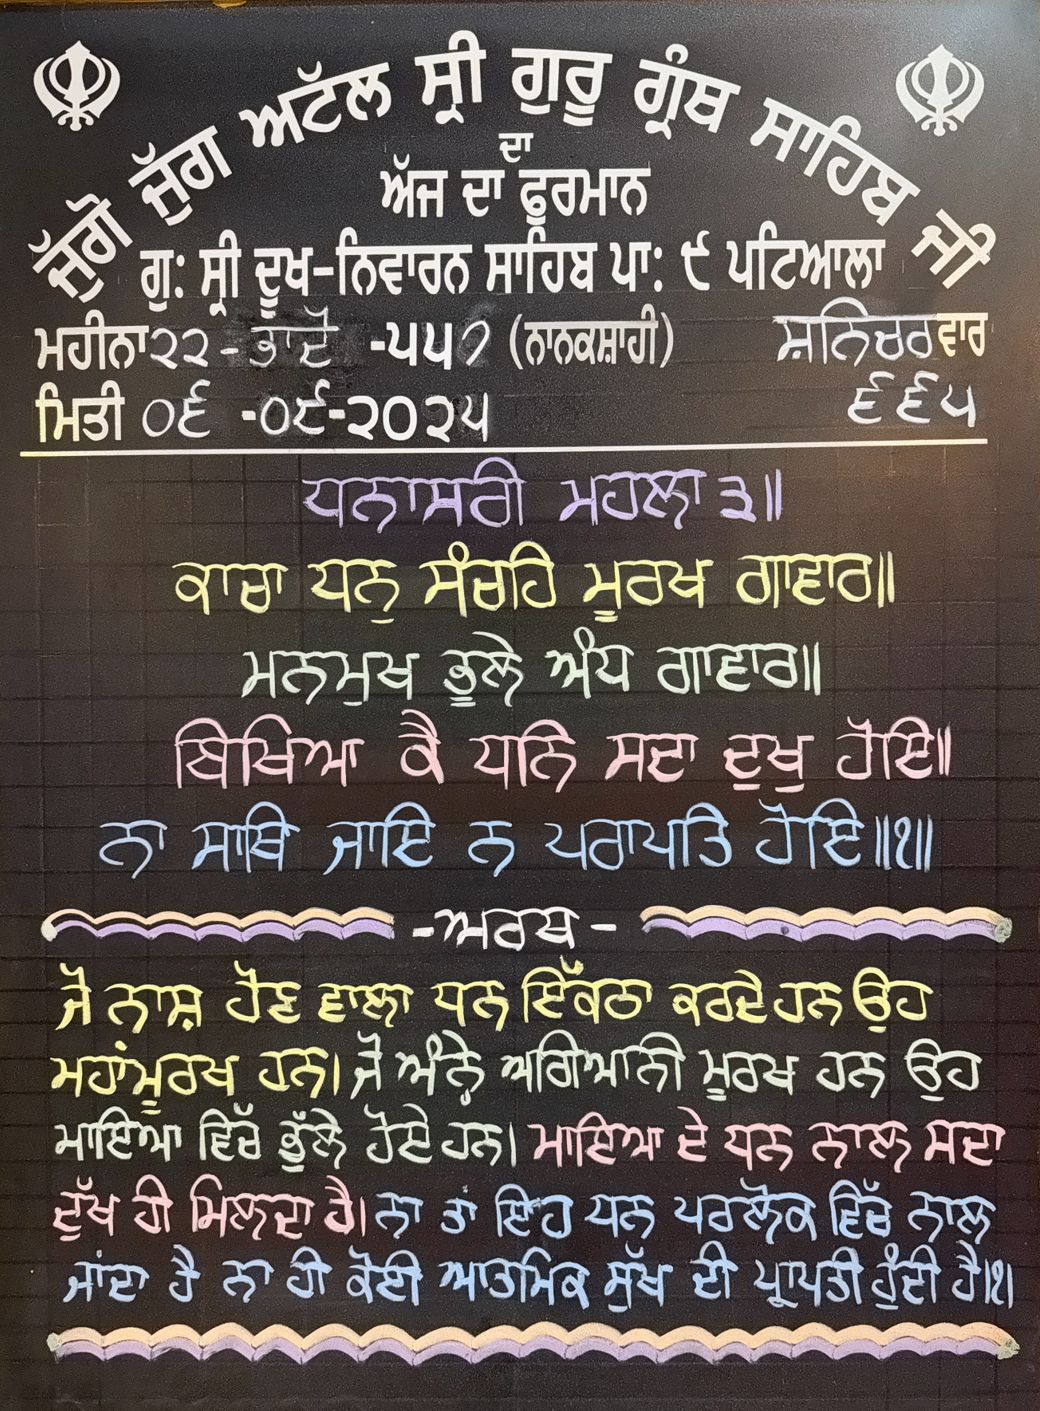 ਜੁੱਗੋ ਜੁੱਗ ਅਟੱਲ ਸ੍ਰੀ ਗੁਰੂ ਗ੍ਰੰਥ ਸਾਹਿਬ ਜੀ
ਦਾ
ਅੱਜ ਦਾ ਫੁਰਮਾਨ
ਗੁ: ਸ੍ਰੀ ਦੂਖ-ਨਿਵਾਰਨ ਸਾਹਿਬ ਪਾ: ੯ ਪਟਿਆਲਾ
ਮਹੀਨਾ ੨੨ - ਭਾਦੋਂ -੫੫੭ (ਨਾਨਕਸ਼ਾਹੀ) ਸ਼ਨਿਚਰਵਾਰ
ਮਿਤੀ ੦੬ -੦੯-੨੦੨੫ ੬੬੫
ਧਨਾਸਰੀ ਮਹਲਾ ੩॥
ਕਾਚਾ ਧਨੁ ਸੰਚਹਿ ਮੂਰਖ ਗਾਵਾਰ॥
ਮਨਮੁਖ ਭੂਲੇ ਅੰਧ ਗਾਵਾਰ॥
ਬਿਖਿਆ ਕੈ ਧਨਿ ਸਦਾ ਦੁਖੁ ਹੋਇ॥
ਨਾ ਸਾਥਿ ਜਾਇ ਨ ਪਰਾਪਤਿ ਹੋਇ॥੧॥
-ਅਰਥ-
ਜੋ ਨਾਸ਼ ਹੋਣ ਵਾਲਾ ਧਨ ਇੱਕਠਾ ਕਰਦੇ ਹਨ ਉਹ
ਮਹਾਂਮੂਰਖ ਹਨ। ਜੋ ਅੰਨ੍ਹੇ ਅਗਿਆਨੀ ਮੂਰਖ ਹਨ ਉਹ
ਮਾਇਆ ਵਿੱਚ ਭੁੱਲੇ ਹੋਏ ਹਨ। ਮਾਇਆ ਦੇ ਧਨ ਨਾਲ ਸਦਾ
ਦੁੱਖ ਹੀ ਮਿਲਦਾ ਹੈ। ਨਾ ਤਾਂ ਇਹ ਧਨ ਪਰਲੋਕ ਵਿੱਚ ਨਾਲ
ਜਾਂਦਾ ਹੈ ਨਾ ਹੀ ਕੋਈ ਆਤਮਿਕ ਸੁੱਖ ਦੀ ਪ੍ਰਾਪਤੀ ਹੁੰਦੀ ਹੈ।੧।